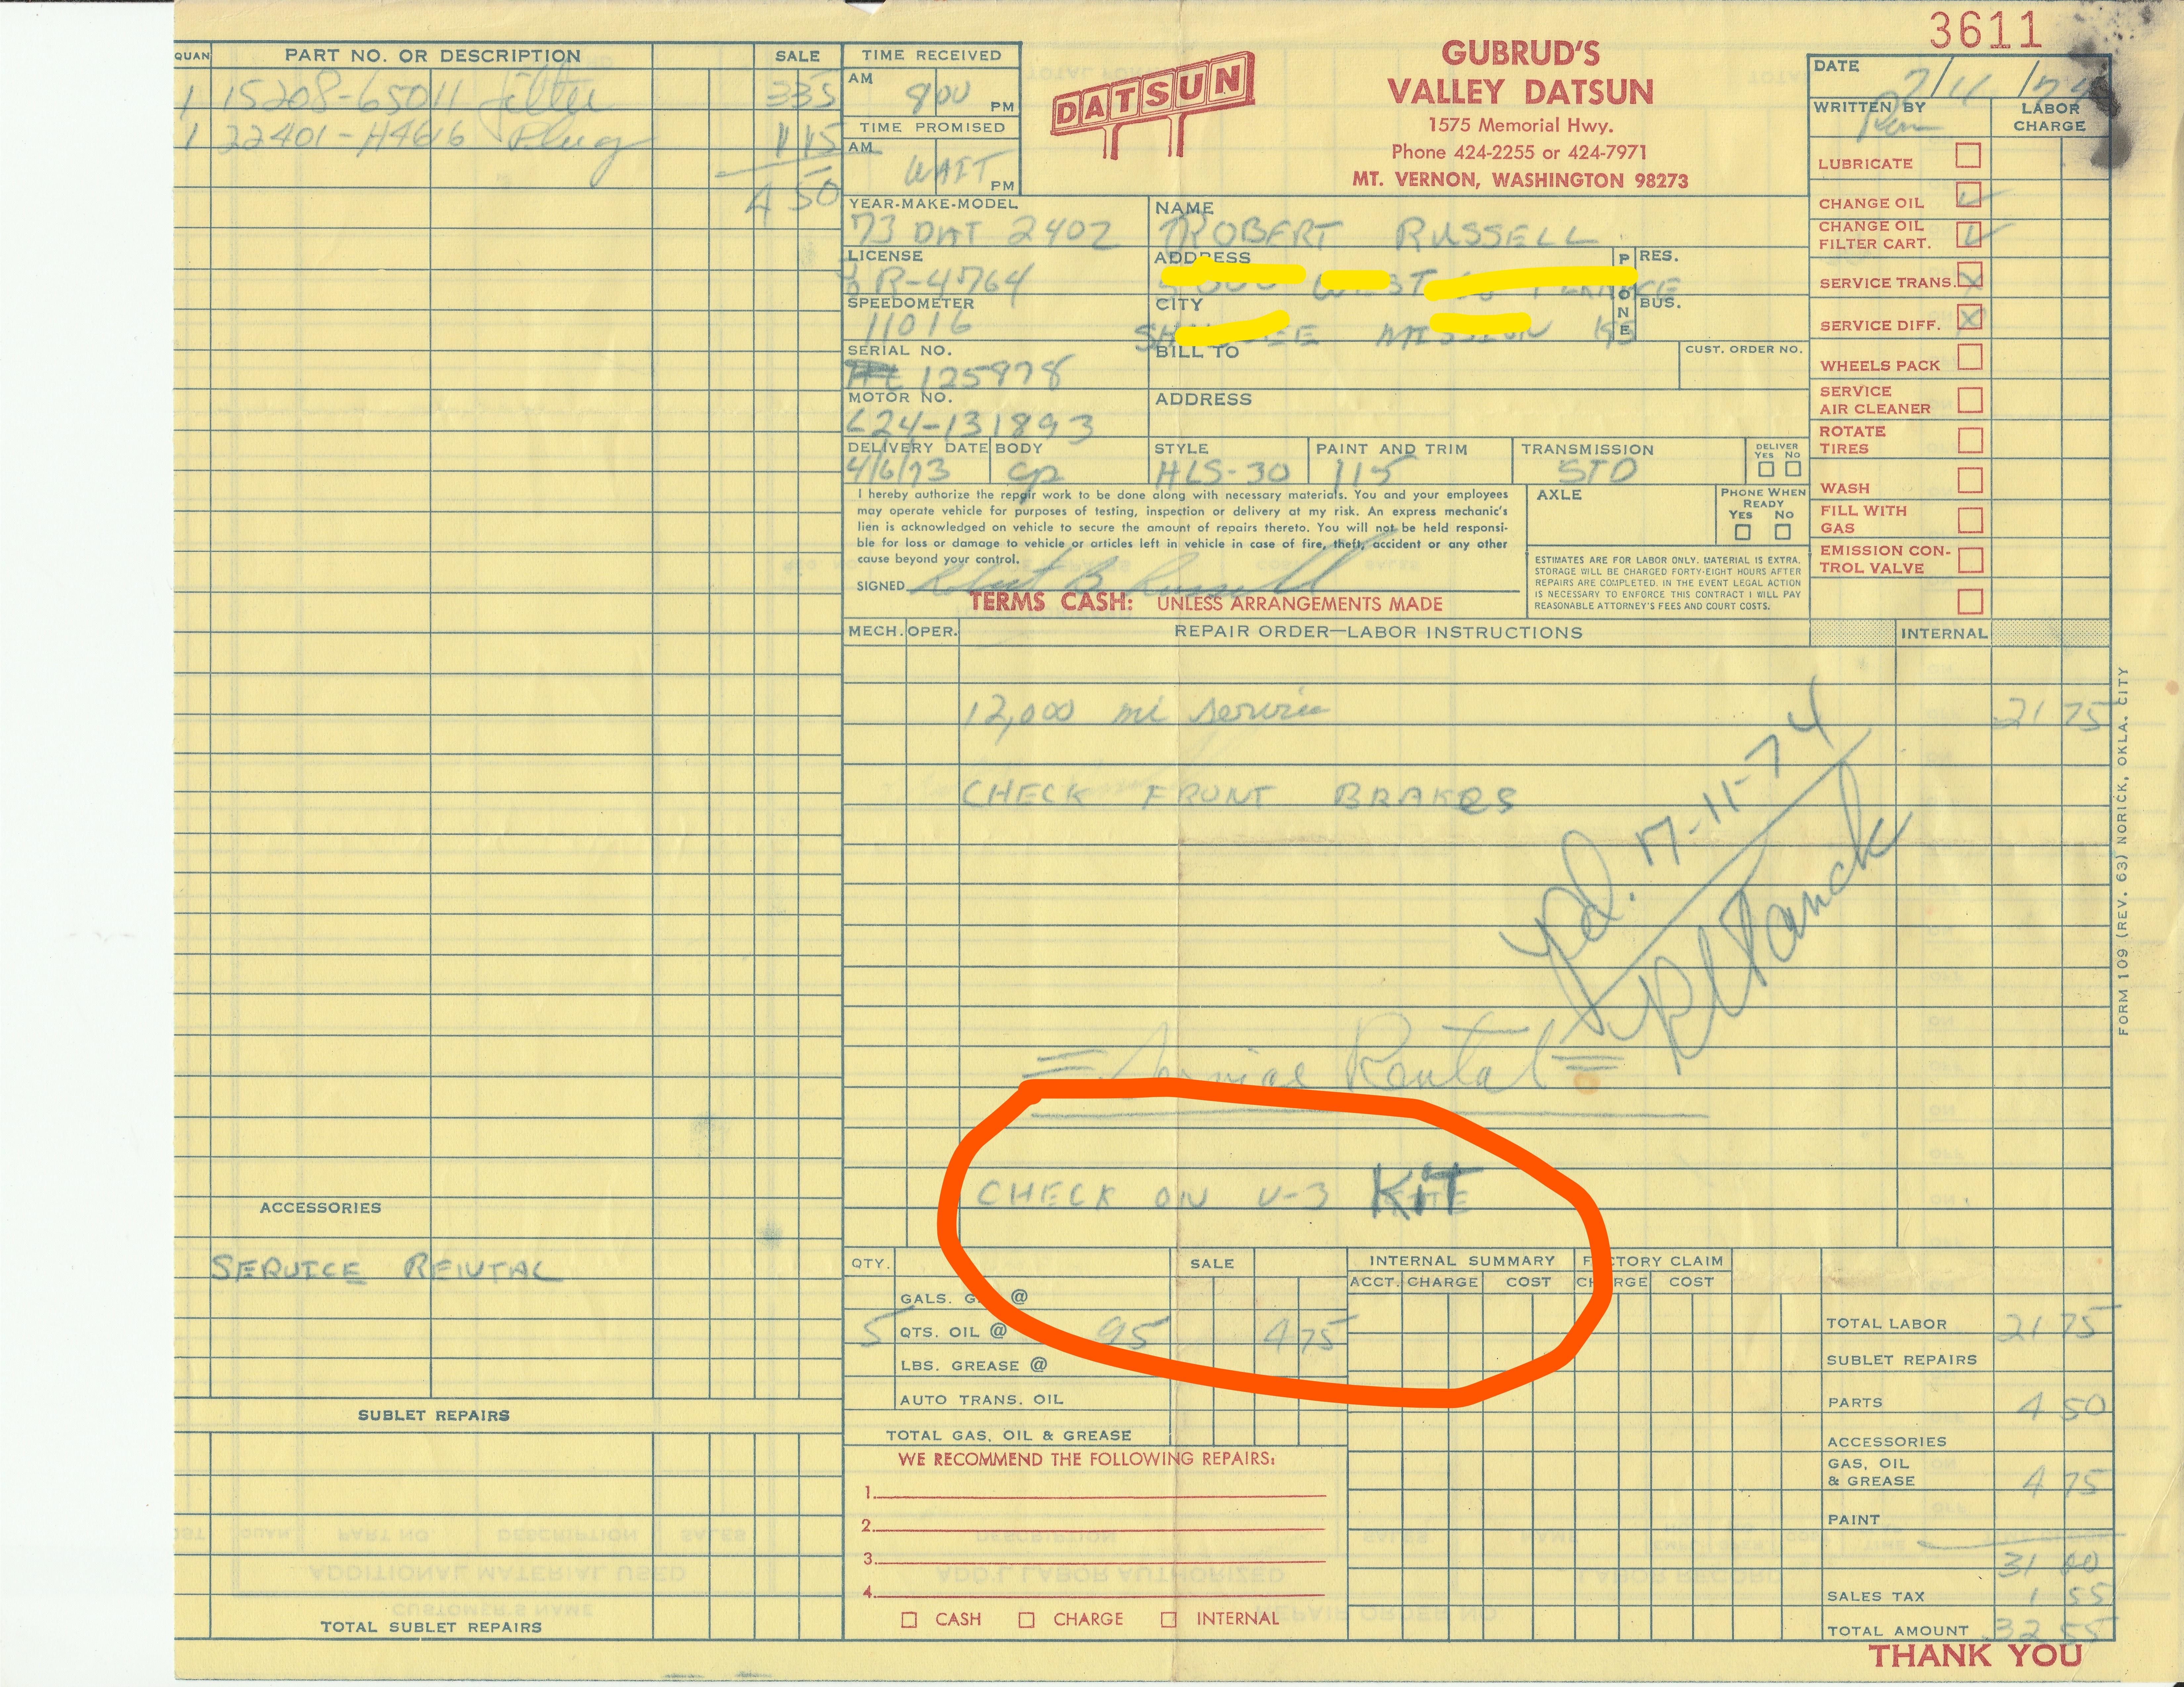 3611
QUAN PART NO. OR DESCRIPTION SALE
1 15208-65011 filter 335
1 22401-H4616 Plug 115
4 50
TIME RECEIVED
AM 800 PM
TIME PROMISED
AM WAIT PM
DATSUN
GUBRUD'S
VALLEY DATSUN
1575 Memorial Hwy.
Phone 424-2255 or 424-7971
MT. VERNON, WASHINGTON 98273
DATE 7/11/74
WRITTEN BY
LABOR CHARGE
LUBRICATE
CHANGE OIL
CHANGE OIL
FILTER CART.
SERVICE TRANS. X
SERVICE DIFF. X
WHEELS PACK
SERVICE
AIR CLEANER
ROTATE
TIRES
WASH
FILL WITH
GAS
EMISSION CON-
TROL VALVE
YEAR-MAKE-MODEL
73 DAT 240Z
NAME
ROBERT RUSSELL
LICENSE
R-4764
ADDRESS
PHONE
RES.
BUS.
SPEEDOMETER
11016
CITY
SERIAL NO.
125978
BILL TO
CUST. ORDER NO.
MOTOR NO.
L24-131893
ADDRESS
DELIVERY DATE
4/6/73
BODY
cp
STYLE
HLS-30
PAINT AND TRIM
115
TRANSMISSION
STD
DELIVER
YES NO
I hereby authorize the repair work to be done along with necessary materials. You and your employees
may operate vehicle for purposes of testing, inspection or delivery at my risk. An express mechanic's
lien is acknowledged on vehicle to secure the amount of repairs thereto. You will not be held responsi-
ble for loss or damage to vehicle or articles left in vehicle in case of fire, theft, accident or any other
cause beyond your control.
SIGNED Robert B Russell
AXLE
PHONE WHEN
READY
YES NO
ESTIMATES ARE FOR LABOR ONLY. MATERIAL IS EXTRA.
STORAGE WILL BE CHARGED FORTY-EIGHT HOURS AFTER
REPAIRS ARE COMPLETED. IN THE EVENT LEGAL ACTION
IS NECESSARY TO ENFORCE THIS CONTRACT I WILL PAY
REASONABLE ATTORNEY'S FEES AND COURT COSTS.
TERMS CASH: UNLESS ARRANGEMENTS MADE
MECH. OPER. REPAIR ORDER—LABOR INSTRUCTIONS INTERNAL
12,000 mi service 21 75
CHECK FRONT BRAKES
Pd. 7-11-74
= Service Rental =
CHECK ON V-3 KIT
FORM 109 (REV. 63) NORICK, OKLA. CITY
ACCESSORIES
SERVICE RENTAL
SUBLET REPAIRS
TOTAL SUBLET REPAIRS
QTY. SALE
GALS. @
5 QTS. OIL @ 95 4 75
LBS. GREASE @
AUTO TRANS. OIL
TOTAL GAS, OIL & GREASE
WE RECOMMEND THE FOLLOWING REPAIRS:
1.
2.
3.
4.
CASH CHARGE INTERNAL
INTERNAL SUMMARY
ACCT. CHARGE COST
FACTORY CLAIM
CHARGE COST
TOTAL LABOR 21 75
SUBLET REPAIRS
PARTS 4 50
ACCESSORIES
GAS, OIL
& GREASE 4 75
PAINT
31 00
SALES TAX 1 55
TOTAL AMOUNT 32 55
THANK YOU